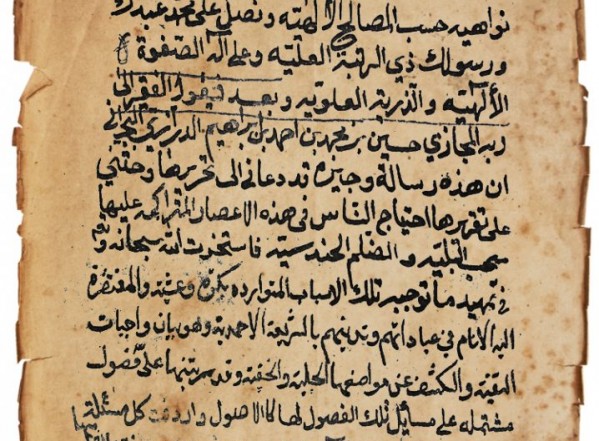 نواهيه حسب المصالح الالهيه ونصلي على محمد عبدك
ورسولك ذي الرتبة العلية وعلى آله الصفوة
الألهيه والذرية العلويه وبعد فيقول الفقير الى
ربه المجازي حسين بن محمد بن احمد بن ابراهيم الدرازي البحراني
ان هذه رسالة وجيزة قد دعاني الى تحريرها وحثني
على تقريرها احتياج الناس في هذه الاعصار المتراكمه عليها
سحب البليه والمظلم الحندسيه فاستخرت الله سبحانه
في تمهيد ما توجبه تلك الاسباب المتوارده بكرة وعشيه والمفتقرة
اليه الانام في عباداتهم وتدينهم بالشريعة الاحمدية وهو بيان واجبات
التقية والكشف عن مواضعها الجلية والخفية وقد رتبتها على فصول
مشتمله على مسائل تلك الفصول لها كالاصول واردفت كل مسئلة